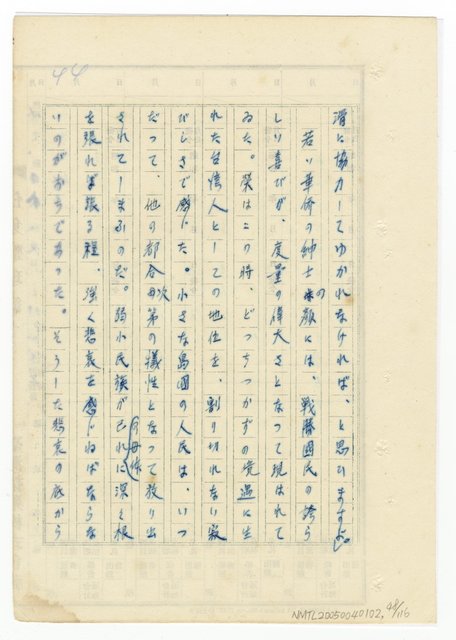 滑に協力してゆかれなければ、と思ひますよ。
若い華僑の紳士の顔には、戦勝國民の誇ら
しい喜びが、度量の偉大さとなつて現はれて
ゐた。榮はこの時、どつちつかずの境遇に生
れた台僑人としての地位を、割り切れない寂
びしさで感じた。小さな島國の人民は、いつ
だつて、他の都合次第の犠性となつて放り出
されてしまふのだ。弱小民族が己れに深く根
を張れば張る程、強く悲哀を感じねばならな
いのがおちであつた。さうした悲哀の底から
44
NMTL20050040102, 44/116